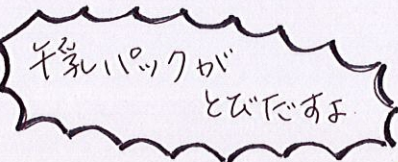 牛乳パックが
とびだすよ